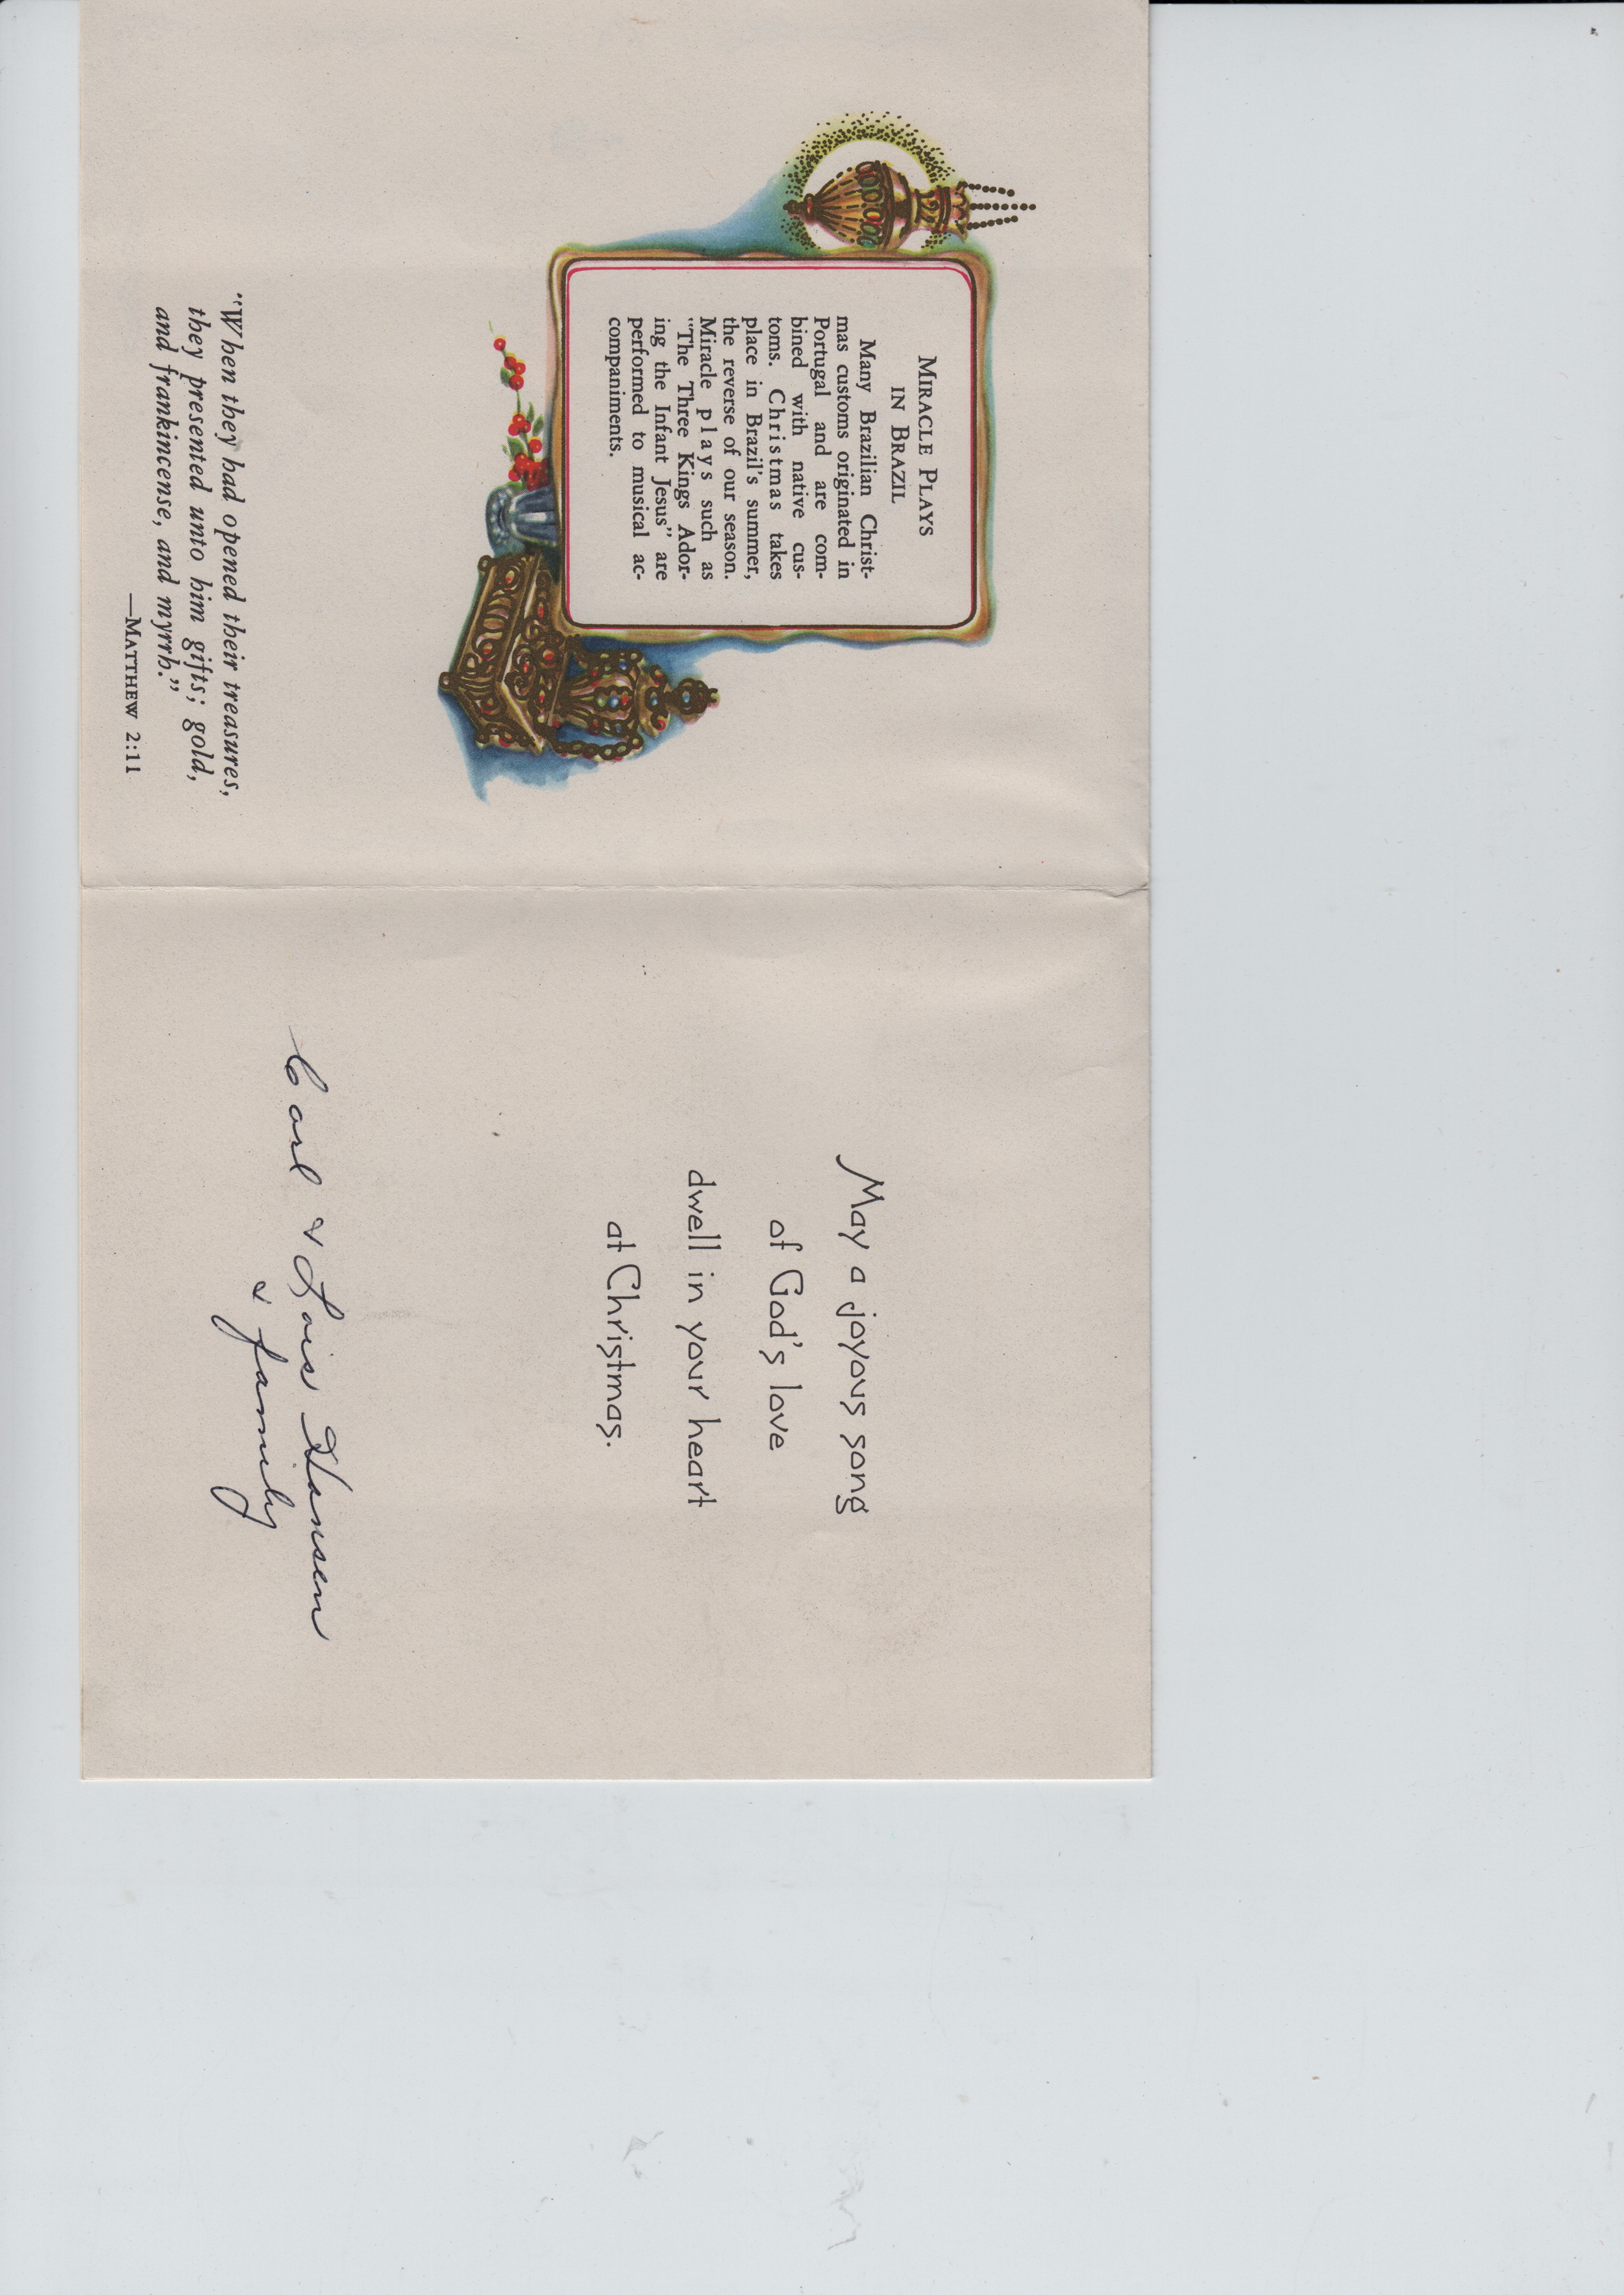 MIRACLE PLAYS
IN BRAZIL
Many Brazilian Christ-
mas customs originated in
Portugal and are com-
bined with native cus-
toms. Christmas takes
place in Brazil's summer,
the reverse of our season.
Miracle plays such as
"The Three Kings Ador-
ing the Infant Jesus" are
performed to musical ac-
companiments.
"When they had opened their treasures,
they presented unto him gifts; gold,
and frankincense, and myrrh."
—MATTHEW 2:11
May a joyous song
of God's love
dwell in your heart
at Christmas.
Carl & Lois Hansen
& family